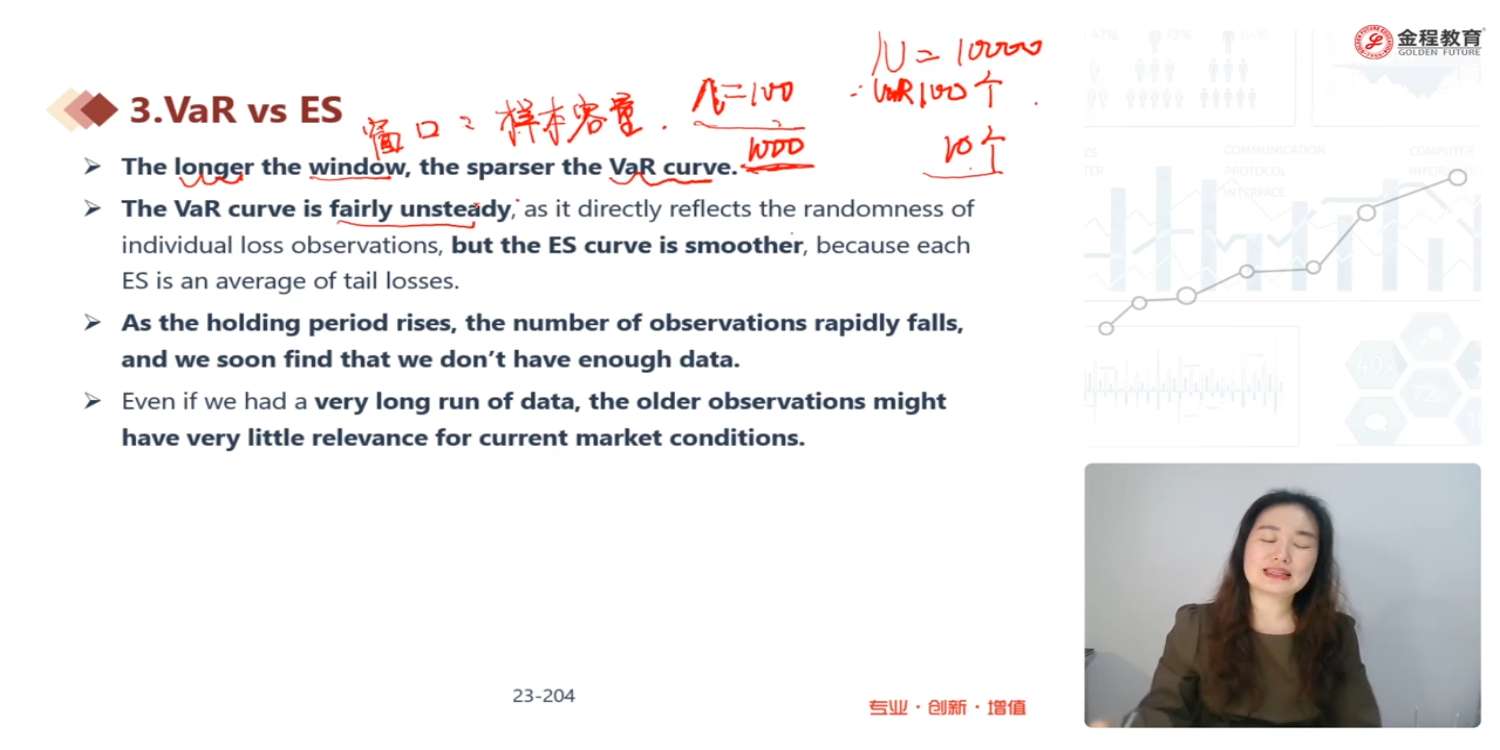 金程教育
GOLDEN FUTURE
N=10000
n=100
VaR100个
3.VaR vs ES
窗口:样本容量.
1000
10个
➤ The longer the window, the sparser the VaR curve.
➤ The VaR curve is fairly unsteady, as it directly reflects the randomness of
individual loss observations, but the ES curve is smoother, because each
ES is an average of tail losses.
➤ As the holding period rises, the number of observations rapidly falls,
and we soon find that we don't have enough data.
➤ Even if we had a very long run of data, the older observations might
have very little relevance for current market conditions.
COMMUNICATION
PROTOCOL
INTERFACE
23-204
专业·创新·增值